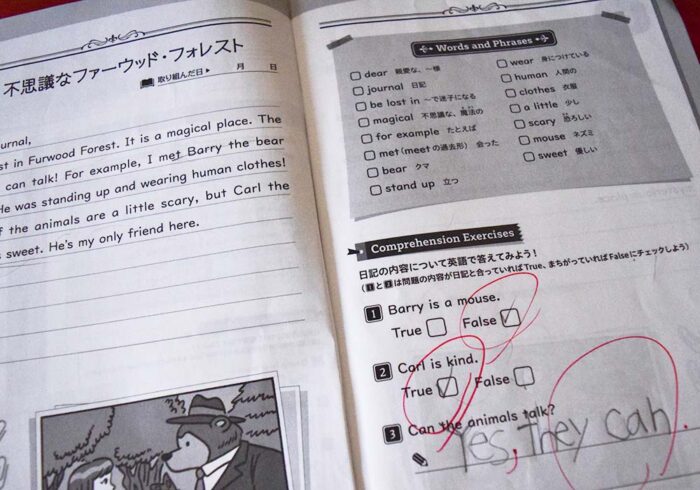 不思議なファーウッド・フォレスト
取り組んだ日▶ 月 日
urnal,
st in Furwood Forest. It is a magical place. The
can talk! For example, I met Barry the bear
He was standing up and wearing human clothes!
f the animals are a little scary, but Carl the
s sweet. He's my only friend here.
Words and Phrases
dear 親愛な、〜様
journal 日記
be lost in 〜で迷子になる
magical 不思議な、魔法の
for example たとえば
met (meet の過去形) 会った
bear クマ
stand up 立つ
wear 身につけている
human 人間の
clothes 衣服
a little 少し
scary 恐ろしい
mouse ネズミ
sweet 優しい
Comprehension Exercises
日記の内容について英語で答えてみよう！
(1と2は問題の内容が日記と合っていればTrue、まちがっていればFalseにチェックしよう)
1 Barry is a mouse.
True False
2 Carl is kind.
True False
3 Can the animals talk?
Yes, they can.